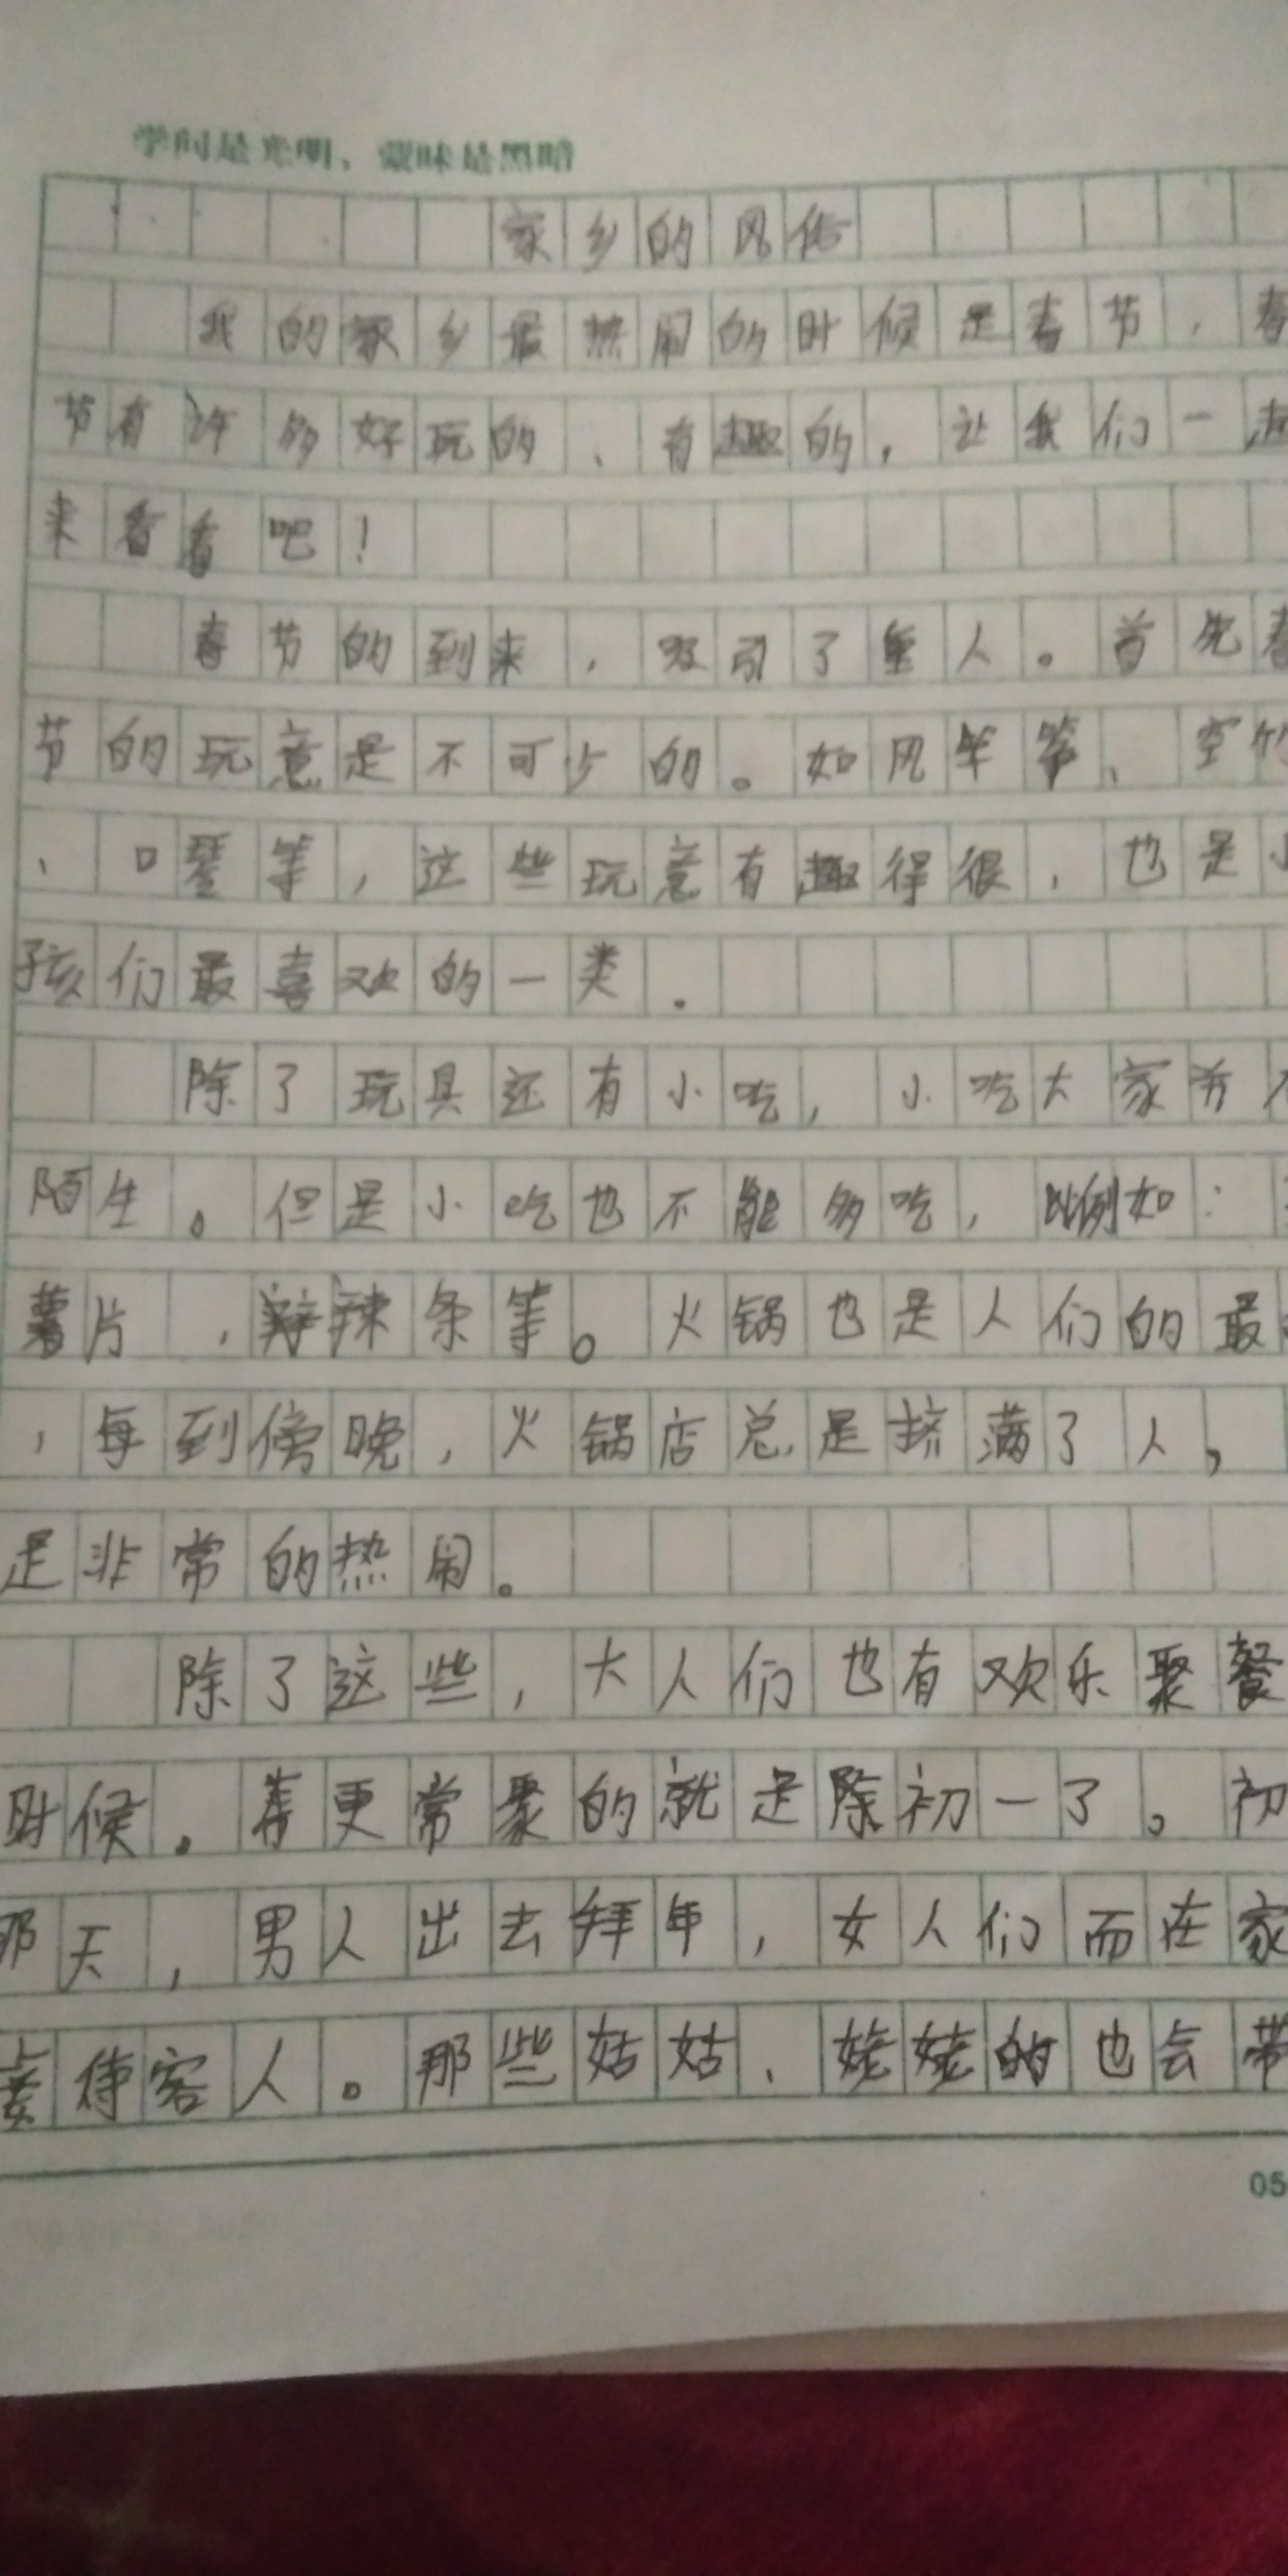 学问是光明，蒙昧是黑暗
家乡的风俗
我的家乡最热闹的时候是春节，春
节有许多好玩的、有趣的，让我们一起
来看看吧！
春节的到来，吸引了人。首先春
节的玩意是不可少的。如风筝、空竹
、口琴等，这些玩意有趣得很，也是小
孩们最喜欢的一类．
除了玩具还有小吃，小吃大家并不
陌生。但是小吃也不能多吃，例如：
薯片，辣条等。火锅也是人们的最
，每到傍晚，火锅店总是挤满了人，
是非常的热闹。
除了这些，大人们也有欢乐聚餐
时候。更常聚的就是除初一了。初
那天，男人出去拜年，女人们而在家
待客人。那些姑姑、姥姥的也会带
05